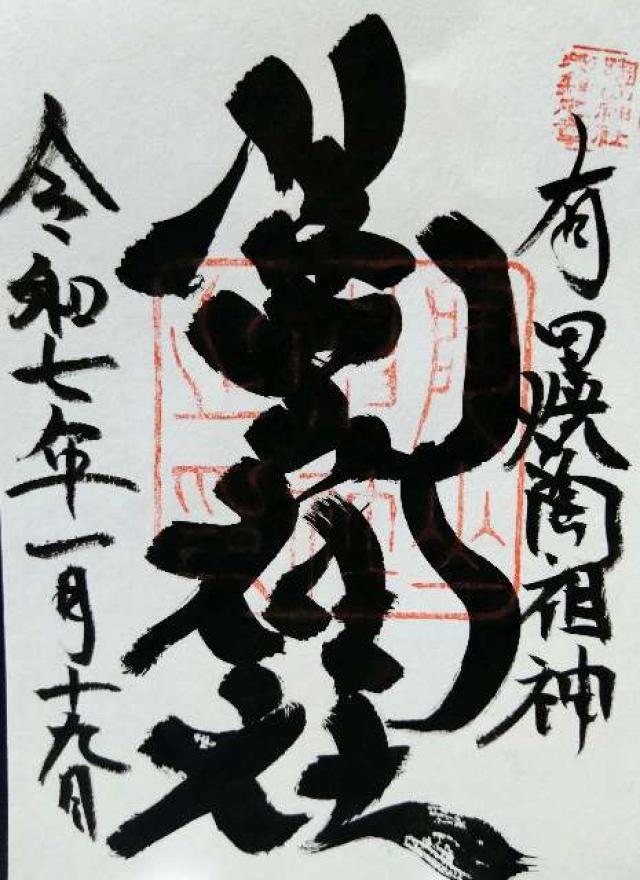 有田焼陶祖神
陶山神社
令和七年一月十九日